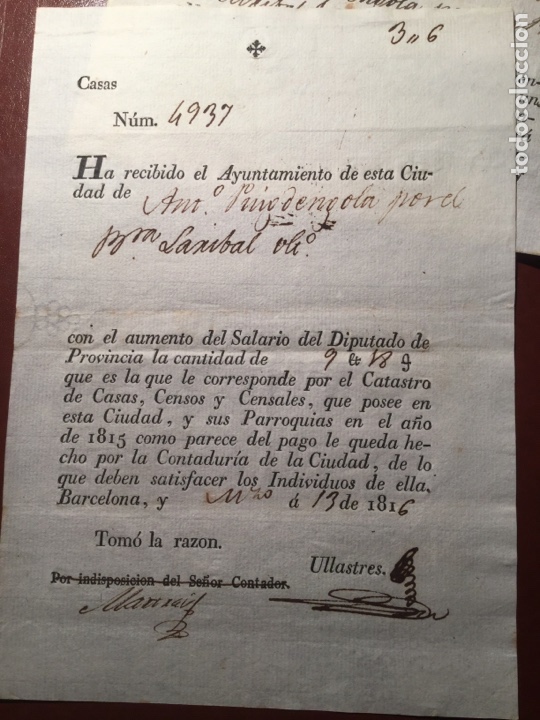 3 " 6
Casas
Núm. 4937
Ha recibido el Ayuntamiento de esta Ciu-
dad de Ant.º Puigdengola por el
Laribal
con el aumento del Salario del Diputado de
Provincia la cantidad de 9 ₶ 18 ẞ
que es la que le corresponde por el Catastro
de Casas, Censos y Censales, que posee en
esta Ciudad, y sus Parroquias en el año
de 1815 como parece del pago le queda he-
cho por la Contaduría de la Ciudad, de lo
que deben satisfacer los Individuos de ella.
Barcelona, y Mzo á 13 de 1816
Tomó la razon.
Ullastres.
Por indisposicion del Señor Contador.
todocoleccion.net